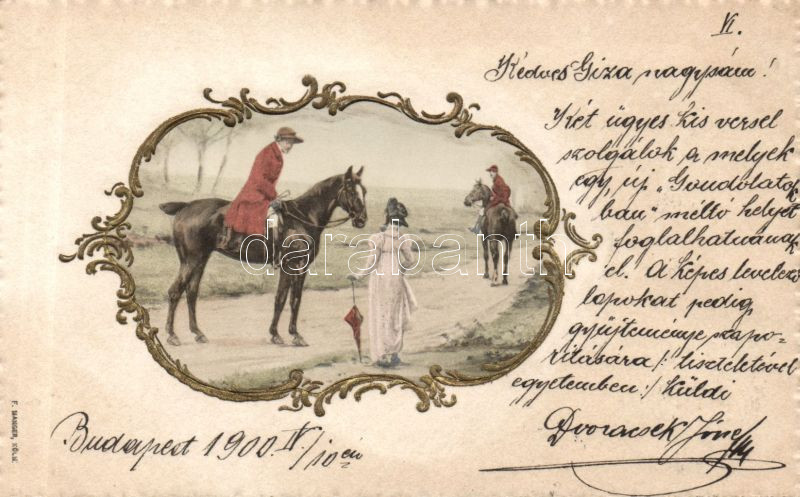 VI.
Kedves Giza nagysám!
Két ügyes kis versel
szolgálok a melyek
egy új „Gondolatok
ban" méltó helyet
foglalhatnának
el. A képes levelező
lapokat pedig
gyűjteménye szapo-
ritására /: tisztelettel
egyetemben :/ küldi
Dvoracsek József
Budapest 1900. IV/10 én
F. MANGER, KÖLN.
darabanth